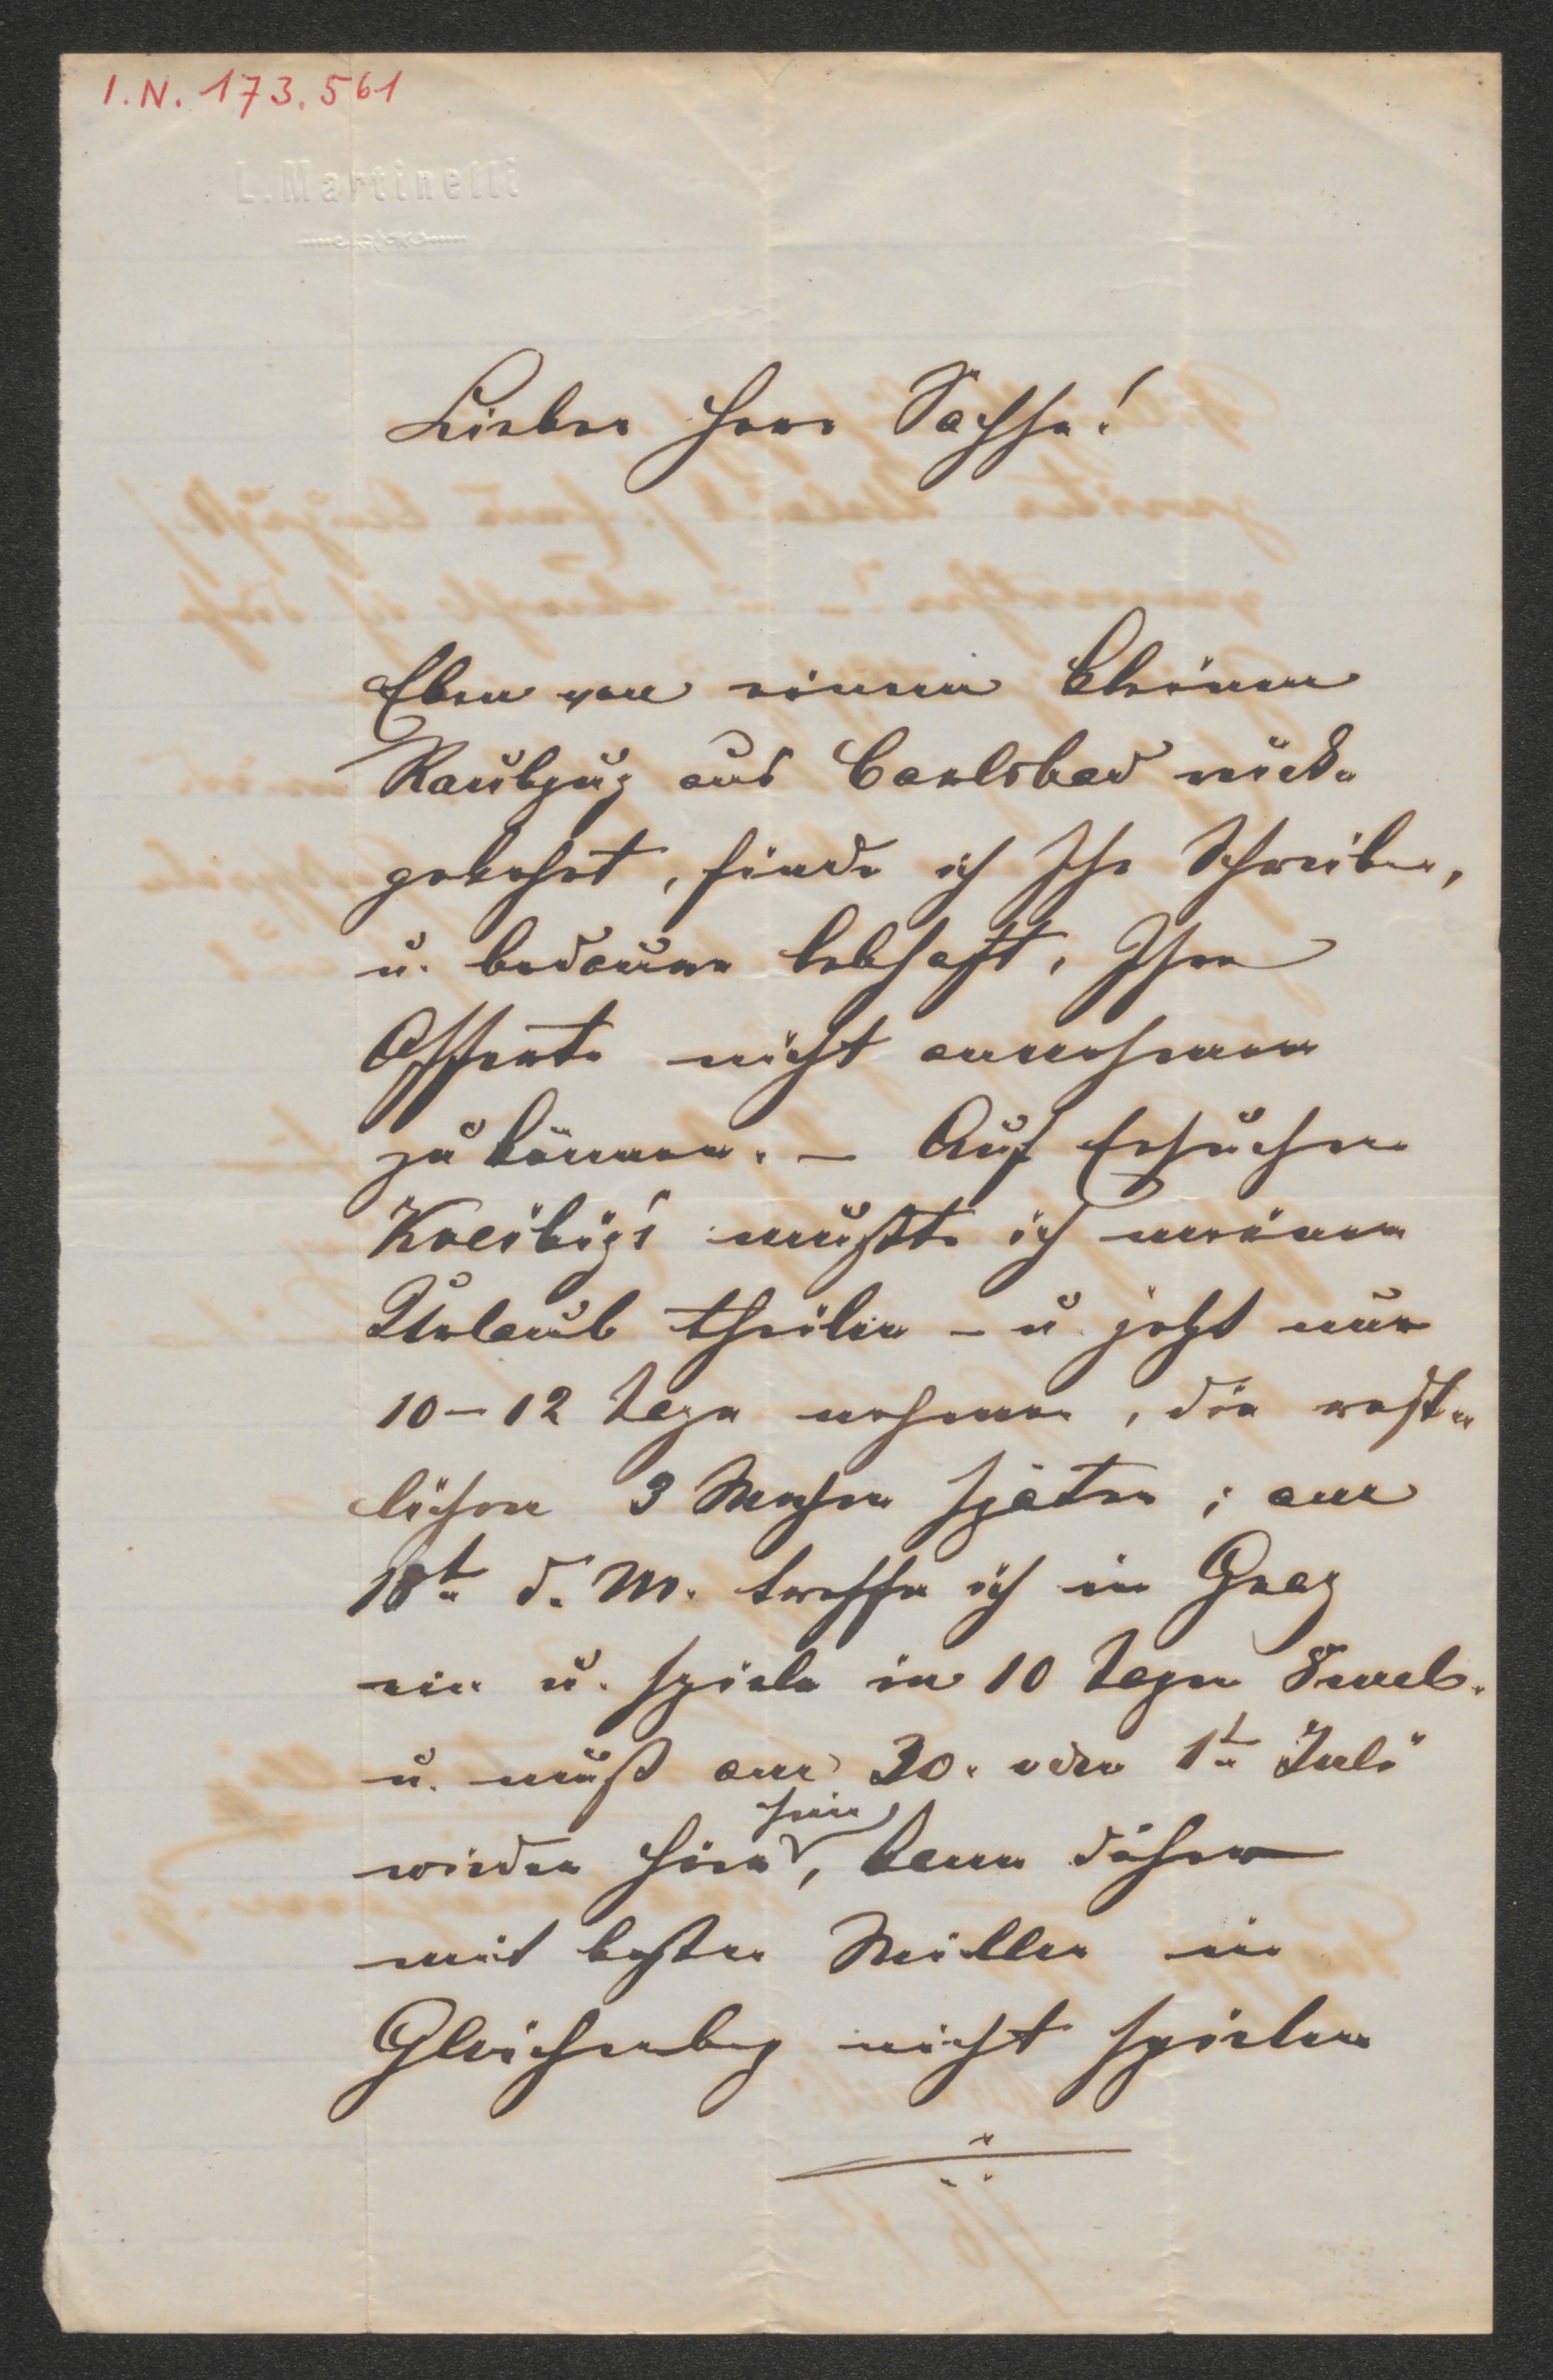 I.N. 173.561
L. Martinelli
Lieber Herr Sachse!
Eben von einem kleinen
Raubzug aus Carlsbad rück-
gekehrt, finde ich Ihr Schreiben,
u. bedaure lebhaft, Ihre
Offerte nicht annehmen
zu können. – Auf Ersuchen
Kreibig's mußte ich meinen
Urlaub theilen – u jetzt nur
10–12 Tage nehmen, die rest-
lichen 3 Wochen später; am
18t. d. M. treffe ich in Graz
ein u. spiele in 10 Tagen 8mal.
u. muß am 30. oder 1t. Juli
wieder hier sein, kann daher
mit bestem Willen in
Gleichenberg nicht spielen